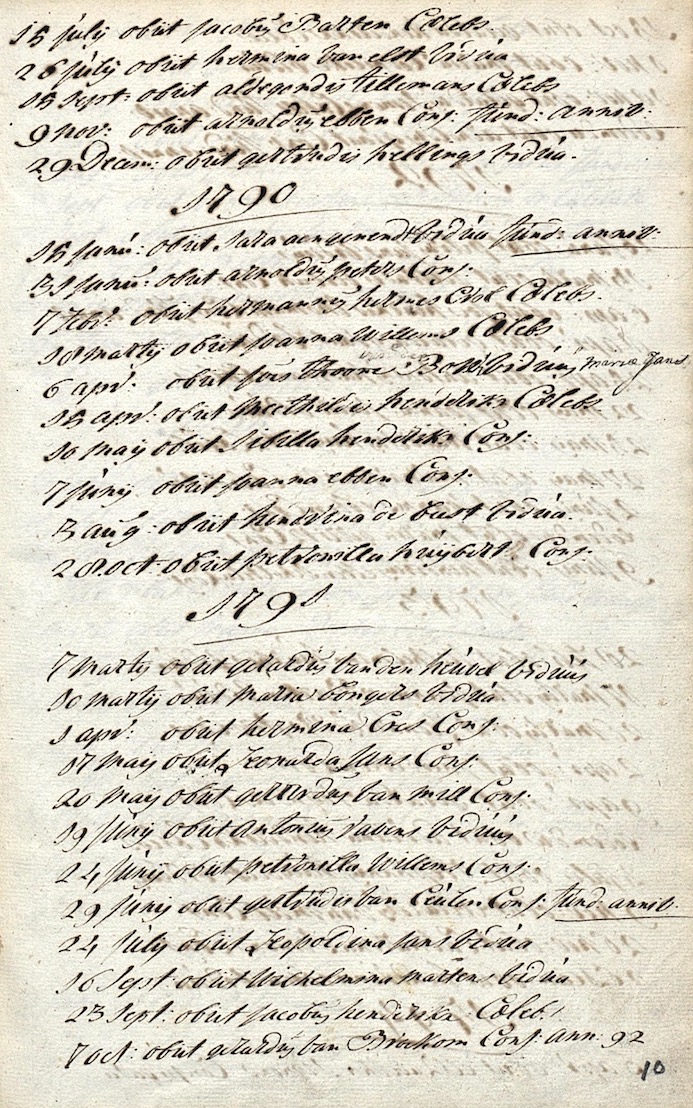 15 julij obiit jacobus Barten Coelebs.
26 julij obiit hermina van elst vidua
15 Sept: obiit aldegondis tillemans Coelebs
9 nov: obiit arnoldus ebben Conj: fund: anniv:
29 Decem: obiit gertrudis hellengs vidua.
1790
15 janu: obiit Sara aengenendt vidua fund: anniv:
31 janu: obiit arnoldus peters Conj:
7 febr: obiit hermannus hermes Coelebs.
18 martij obiit joanna Willems Coelebs
6 apr: obiit jois thoone viduus mariae Jans
15 apr: obiit Mechthildis hendriks Coelebs.
10 maij obiit Sibilla hendriks Conj:
7 junij obiit joanna ebben Conj:
3 aug: obiit hendrina de bust vidua.
28 oct: obiit petronilla huijbert Conj:
1791
7 martij obiit gerardus van den heuvel viduus
10 martij obiit maria bongers vidua
1 apr: obiit hermina Cres Conj:
17 maij obiit Leonarda jans Conj:
20 maij obiit gerardus van mill Conj:
19 junij obiit Antonius ravens viduus
24 junij obiit petronilla Willems Conj:
29 junij obiit gertrudis van Ceulen Conj: fund: anniv.
24 julij obiit Leopoldina jans vidua
16 Sept obiit Wilhelmina martens vidua
23 Sept: obiit jacobus hendriks Coelebs
7 oct: obiit gerardus van Brockom Conj: ann: 92
10